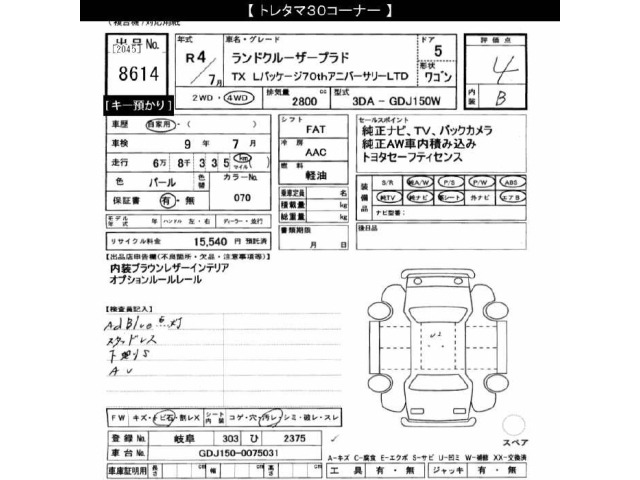 【 トレタマ30コーナー 】
(複合機)対応用紙
出品No. [2045] 8614
[キー預かり]
年式 R4/7月
車名・グレード
ランドクルーザープラド
TX Lパッケージ70thアニバーサリーLTD
ドア 5
形状 ワゴン
2WD・4WD 排気量 2800 cc 型式 3DA - GDJ150W
評価点 4
内装 B
車歴 自家用・
車検 9 年 7 月
走行 6万 8千 3 3 5 km マイル
色 パール 色替 カラーNo. 070
保証書 有・無
モデル年式 年 ハンドル 左・右 ディーラー・並行
リサイクル料金 15,540 円 預託済
シフト FAT
冷房 AAC
燃料 軽油
乗車定員 名
積載量 kg
総重量 kg
書類期限 月 日
セールスポイント
純正ナビ、TV、バックカメラ
純正AW車内積み込み
トヨタセーフティセンス
装備品 S/R 純A/W P/S P/W ABS
純TV 純ナビ 革シート 外ナビ エアB
ナビ型番:
後日品
【出品店申告欄(不良箇所・欠品・注意事項等)】
内装ブラウンレザーインテリア
オプションルールレール
【検査員記入】
AdBlue 灯
スタッドレス
下廻りS
AU
U2
FW キズ・トビ石・割レX シート内装 コゲ・穴・汚レ・シミ・破レ・スレ
登録No. 岐阜 303 ひ 2375
車台No. GDJ150-0075031
車庫証明用 長さ cm 幅 cm 高さ cm
スペア
A-キズ C-腐食 E-エクボ S-サビ U-凹ミ W-補修 XX-交換済
工具 有・無 ジャッキ 有・無